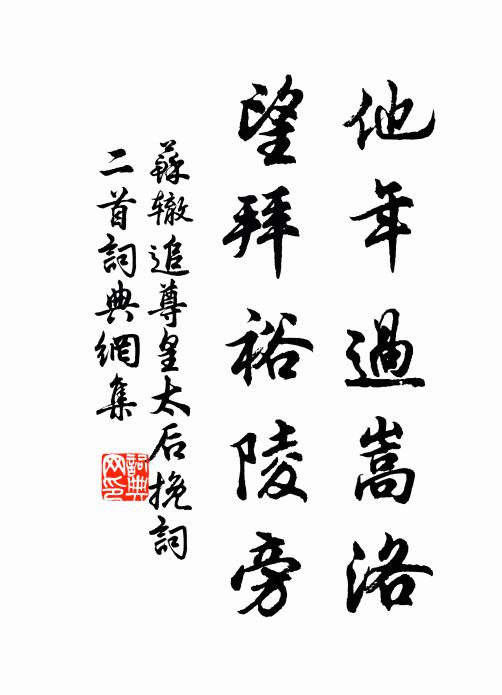 他年過嵩洛
望拜裕陵旁
蘇辙追尊皇太后挽詞
二首詞典網集
詞典
网印